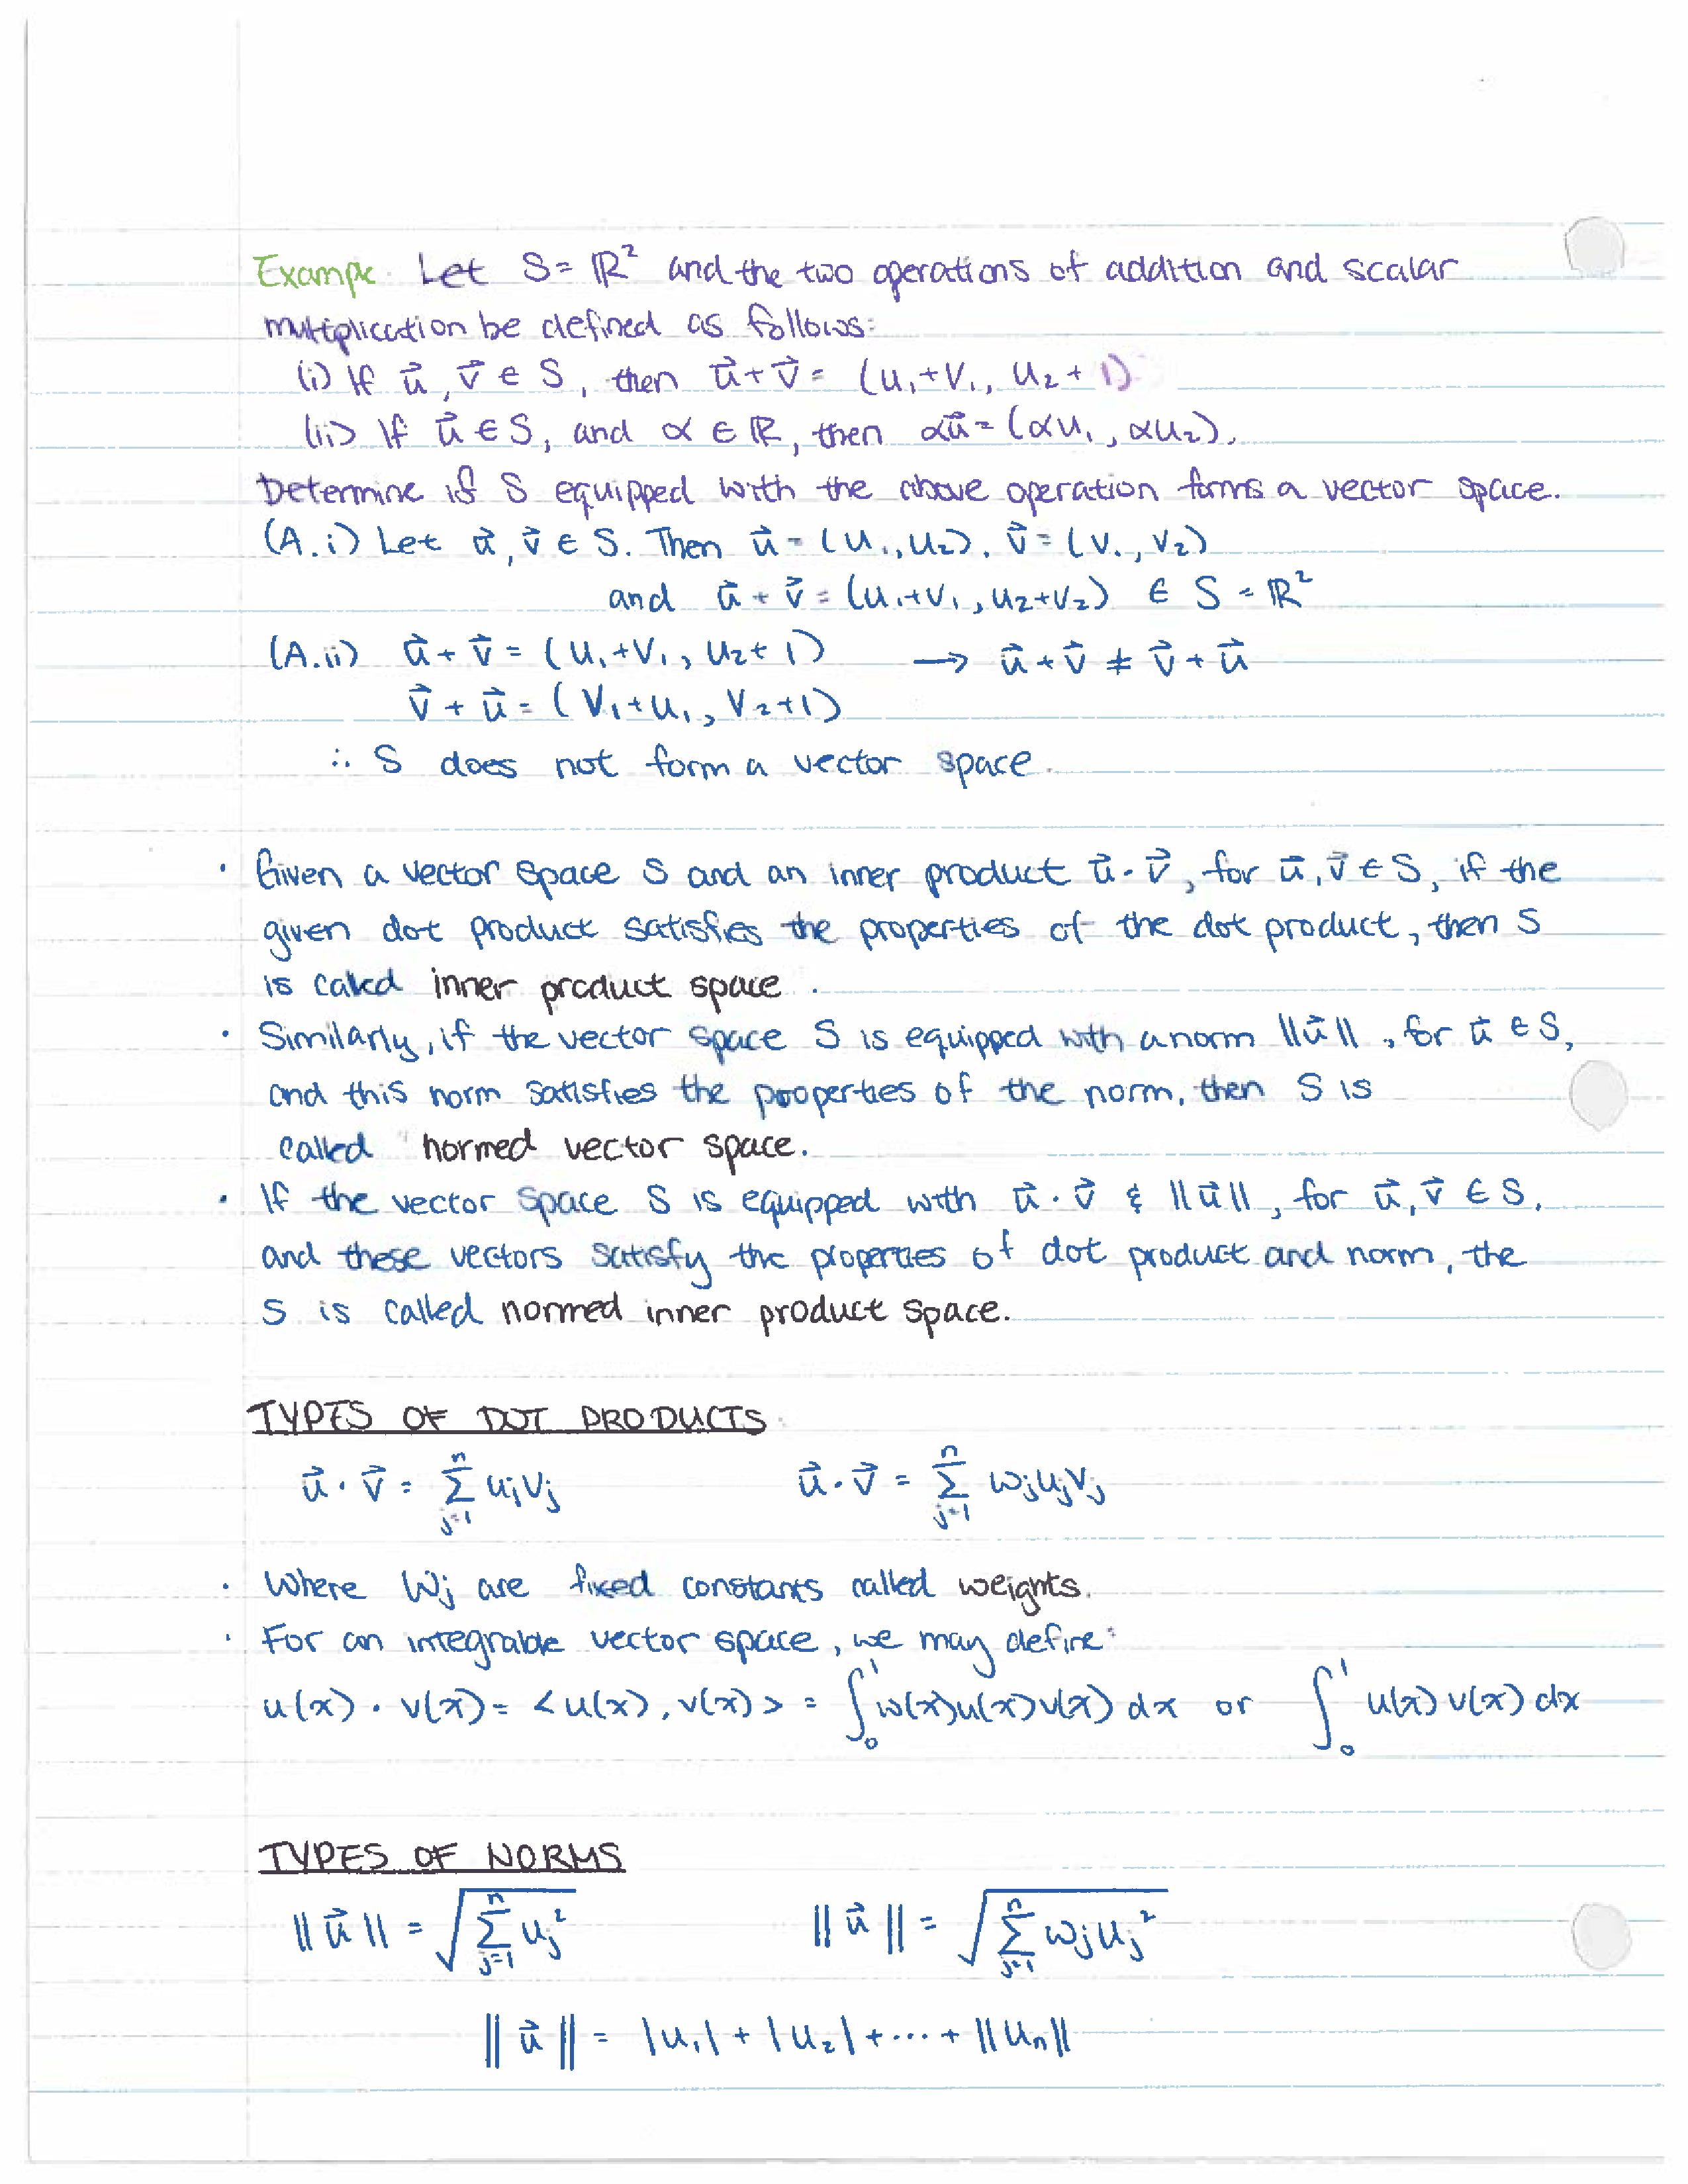 Example. Let S = ℝ² and the two operations of addition and scalar
multiplication be defined as follows:
(i) If u⃗, v⃗ ∈ S, then u⃗ + v⃗ = (u₁+v₁, u₂+1)
(ii) If u⃗ ∈ S, and α ∈ ℝ, then αu⃗ = (αu₁, αu₂).
Determine if S equipped with the above operation forms a vector space.
(A.i) Let u⃗, v⃗ ∈ S. Then u⃗ = (u₁, u₂), v⃗ = (v₁, v₂)
and u⃗ + v⃗ = (u₁+v₁, u₂+v₂) ∈ S = ℝ²
(A.ii) u⃗ + v⃗ = (u₁+v₁, u₂+1) → u⃗ + v⃗ ≠ v⃗ + u⃗
v⃗ + u⃗ = (v₁+u₁, v₂+1)
∴ S does not form a vector space.
· Given a vector space S and an inner product u⃗ · v⃗, for u⃗, v⃗ ∈ S, if the
given dot product satisfies the properties of the dot product, then S
is called inner product space.
· Similarly, if the vector space S is equipped with a norm ||u⃗||, for u⃗ ∈ S,
and this norm satisfies the properties of the norm, then S is
called normed vector space.
· If the vector space S is equipped with u⃗ · v⃗ & ||u⃗||, for u⃗, v⃗ ∈ S,
and these vectors satisfy the properties of dot product and norm, the
S is called normed inner product space.
TYPES OF DOT PRODUCTS
u⃗ · v⃗ = ∑ⁿⱼ₌₁ uⱼvⱼ u⃗ · v⃗ = ∑ⁿⱼ₌₁ wⱼuⱼvⱼ
· Where wⱼ are fixed constants called weights.
· For an integrable vector space, we may define:
u(x) · v(x) = <u(x), v(x)> = ∫₀¹ w(x)u(x)v(x) dx or ∫₀¹ u(x)v(x) dx
TYPES OF NORMS
||u⃗|| = √(∑ⁿⱼ₌₁ uⱼ²) ||u⃗|| = √(∑ⁿⱼ₌₁ wⱼuⱼ²)
||u⃗|| = |u₁| + |u₂| + ··· + ||uₙ||